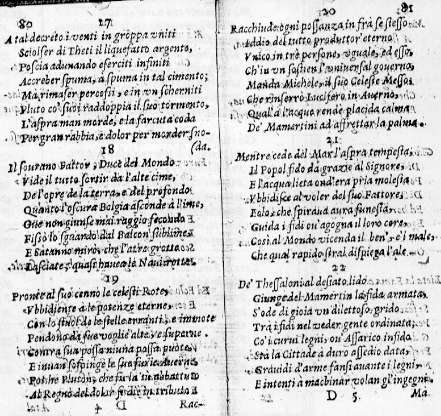 80 17
A tal decreto i venti in groppa vniti
Sciolser di Theti il liquefatto argento,
Poscia adunando eserciti infiniti
Accreber spuma, a spuma in tal cimento;
Ma rimaser percossi, e in vn scherniti
Pluto co' suoi raddoppia il suo tormento,
L'aspra man morde, e la
Per gran rabbia, e dolor per morder
18
Il sourano Fattor, Duce del Mondo
Vide il tutto sortir da l'alte cime,
De l'opre de la terra, e del profondo
Quanto l'oscura Bolgia asconde à l'ime,
Oue non giunse mai raggio secondo
Fissò lo sguardo dal Balcon sublime,
E Satanno mirò, che l'atre grotte
Lasciate, quasi hauea la
19
Pronte al suo cenno le celesti Rote,
Vbbidiente à le potenze eterne,
Con lo stuol de le stelle erranti, e immote
Pendono da sue voglie alte, e superne
Contra sua possa niuna possa puote,
E inuan sospinge le sue furie Auerne,
Poiche Pluton, che fù la giù
Al Regno del dolor
4 D Rac-
20 81
Racchiude ogni possanza in frà se stesso
Iddio del tutto produttor' eterno,
Vnico in trè persone, vguale, ed esso,
Ch'in vn sostien l'vniuersal gouerno,
Manda Michele, il suo Celeste Messo,
Che rinserrò Lucifero in Auerno,
Qual' à l'acqua rende placida calma
De' Mamertini ad affrettar la palma.
21
Mentre cede del Mar l'aspra tempesta,
Il Popol fido dà grazie al Signore,
E l'acqua lieta ond'era pria molesta
Vbbidisce al voler del suo Fattore;
Eolo, che spiraua aura funesta,
Guida i fidi ou'agogna il loro core,
Così al Mondo vicenda il ben', e'l male,
Che qual rapido stral dispiega l'ale.
22
De' Thessalonia'l desiato lido
Giunge del Mamertin la fida armata,
S'ode di gioia vn dilettoso grido
Trà i fidi nel veder gente ordinata;
Co' i curui legni, ou' Assarico infido
Stà la Cittade à duro assedio data,
Grauidi d'arme fansi auante i legni
E intenti a machinar volan gl'ingegni
D 5 Ma